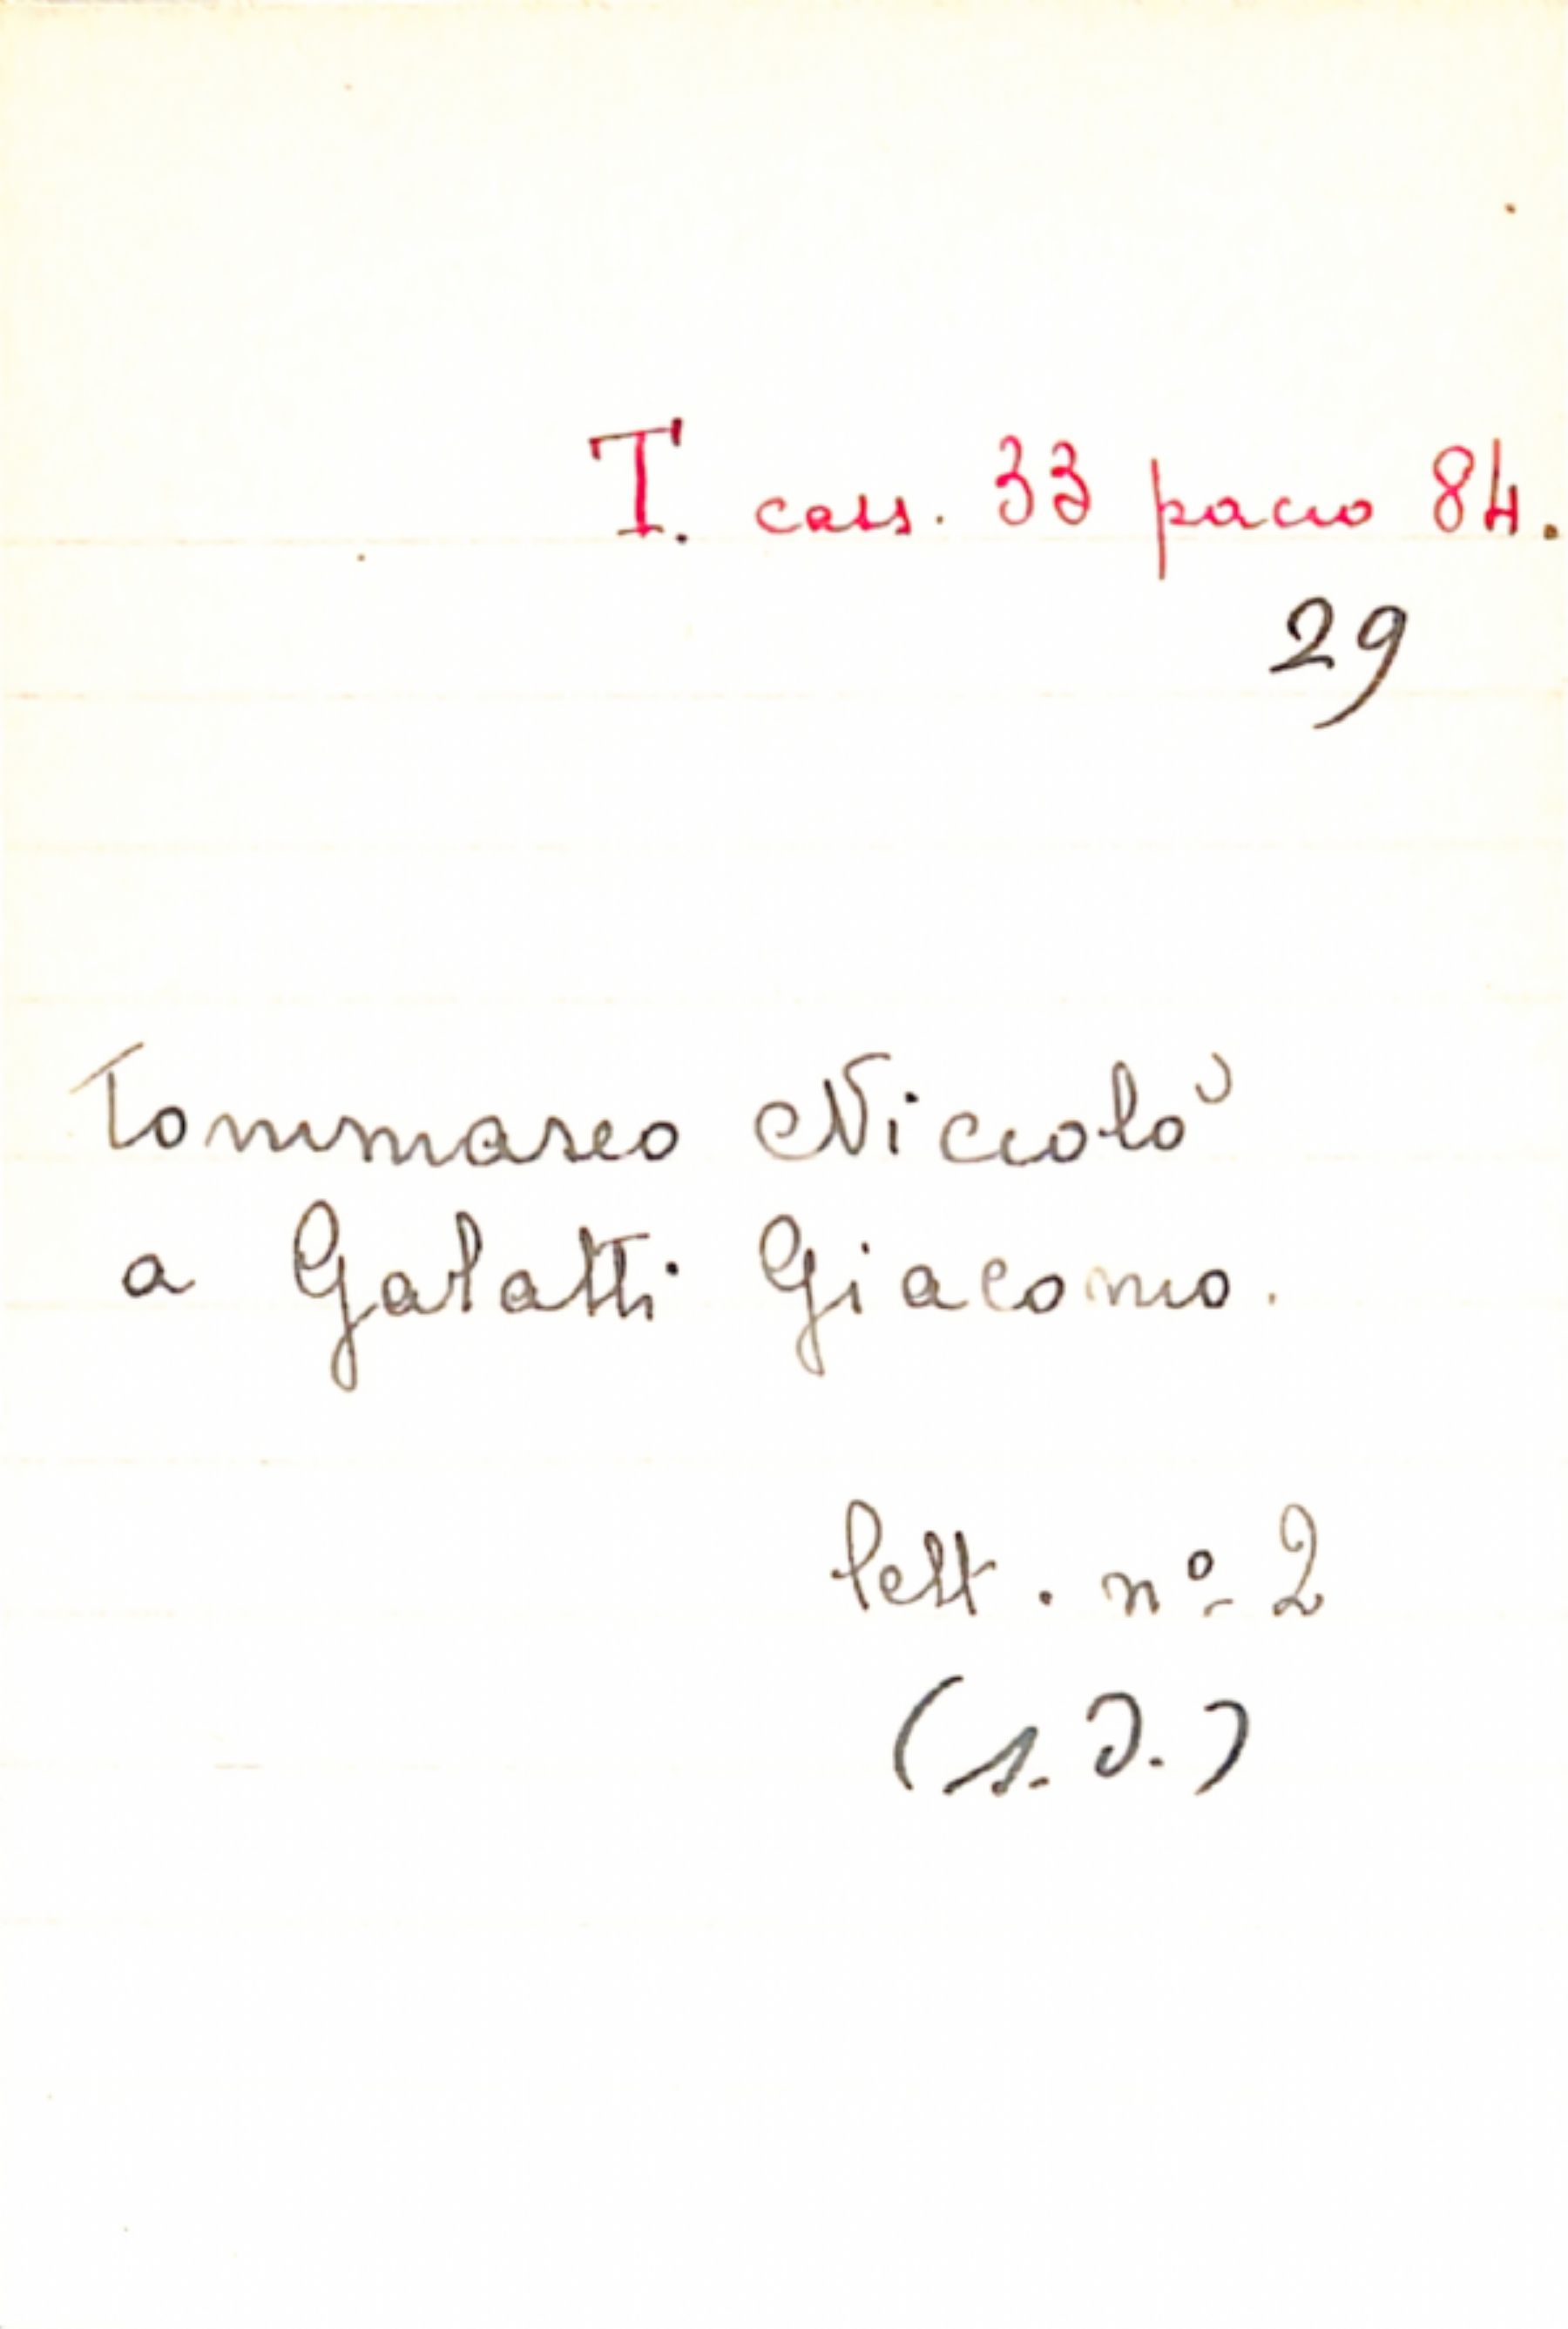 T. cass. 33 pacco 84.
29
Tommaseo Niccolò
a Galatti Giacomo.
lett. nº 2
(s. d.)